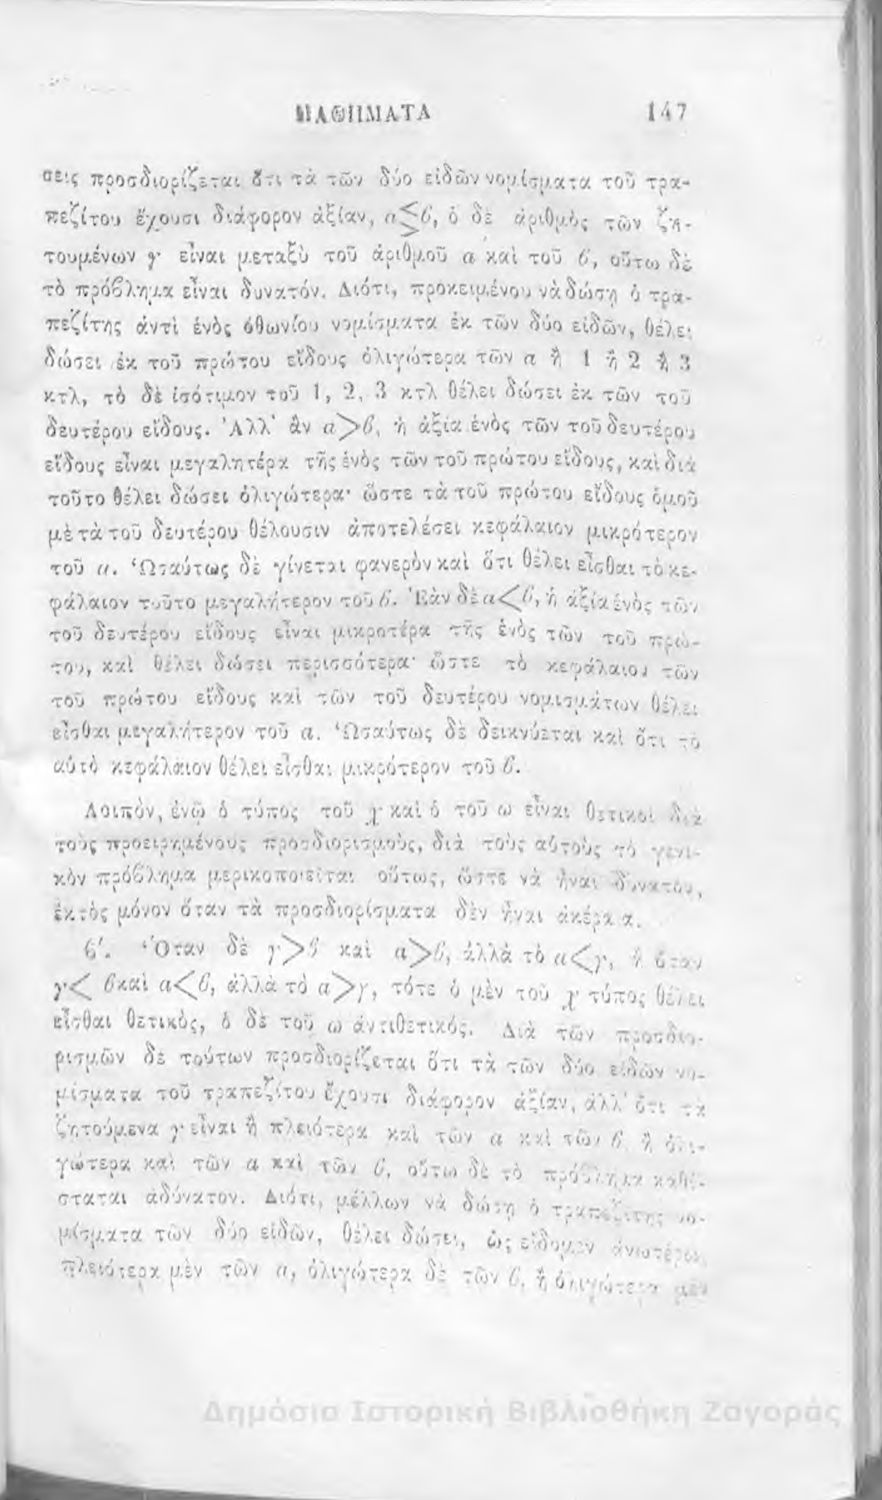 ΜΑΘΗΜΑΤΑ 147
σεις προσδιορίζεται ὅτι τὰ τῶν δύο εἰδῶν νομίσματα τοῦ τρα-
πεζίτου ἔχουσι διάφορον ἀξίαν, α≶β, ὁ δὲ ἀριθμὸς τῶν ζη-
τουμένων γ εἶναι μεταξὺ τοῦ ἀριθμοῦ α καὶ τοῦ β, οὕτω δὲ
τὸ πρόβλημα εἶναι δυνατόν. Διότι, προκειμένου νὰ δώσῃ ὁ τρα-
πεζίτης ἀντὶ ἑνὸς ὀθωνίου νομίσματα ἐκ τῶν δύο εἰδῶν, θέλει
δώσει ἐκ τοῦ πρώτου εἴδους ὀλιγώτερα τῶν α ἢ 1 ἢ 2 ἢ 3
κτλ, τὸ δὲ ἰσότιμον τοῦ 1, 2, 3 κτλ θέλει δώσει ἐκ τῶν τοῦ
δευτέρου εἴδους. Ἀλλ' ἂν α>β, ἡ ἀξία ἑνὸς τῶν τοῦ δευτέρου
εἴδους εἶναι μεγαλητέρα τῆς ἑνὸς τῶν τοῦ πρώτου εἴδους, καὶ διὰ
τοῦτο θέλει δώσει ὀλιγώτερα· ὥστε τὰ τοῦ πρώτου εἴδους ὁμοῦ
μὲ τὰ τοῦ δευτέρου θέλουσιν ἀποτελέσει κεφάλαιον μικρότερον
τοῦ α. Ὡσαύτως δὲ γίνεται φανερὸν καὶ ὅτι θέλει εἶσθαι τὸ κε-
φάλαιον τοῦτο μεγαλήτερον τοῦ β. Ἐὰν δὲ α<β, ἡ ἀξία ἑνὸς τῶν
τοῦ δευτέρου εἴδους εἶναι μικροτέρα τῆς ἑνὸς τῶν τοῦ πρώ-
του, καὶ θέλει δώσει περισσότερα· ὥστε τὸ κεφάλαιον τῶν
τοῦ πρώτου εἴδους καὶ τῶν τοῦ δευτέρου νομισμάτων θέλει
εἶσθαι μεγαλήτερον τοῦ α. Ὡσαύτως δὲ δεικνύεται καὶ ὅτι τὸ
αὐτὸ κεφάλαιον θέλει εἶσθαι μικρότερον τοῦ β.
Λοιπὸν, ἐνῷ ὁ τύπος τοῦ χ καὶ ὁ τοῦ ω εἶναι θετικοὶ διὰ
τοὺς προειρημένους προσδιορισμοὺς, διὰ τοὺς αὐτοὺς τὸ γενι-
κὸν πρόβλημα μερικοποιεῖται οὕτως, ὥστε νὰ ἦναι δυνατὸν,
ἐκτὸς μόνον ὅταν τὰ προσδιορίσματα δὲν ἦναι ἀκέραια.
β'. Ὅταν δὲ γ>β καὶ α>β, ἀλλὰ τὸ α<γ, ἢ ὅταν
γ< β καὶ α<β, ἀλλὰ τὸ α>γ, τότε ὁ μὲν τοῦ χ τύπος θέλει
εἶσθαι θετικὸς, ὁ δὲ τοῦ ω ἀντιθετικός. Διὰ τῶν προσδιο-
ρισμῶν δὲ τούτων προσδιορίζεται ὅτι τὰ τῶν δύο εἰδῶν νο-
μίσματα τοῦ τραπεζίτου ἔχουσι διάφορον ἀξίαν, ἀλλ' ὅτι τὰ
ζητούμενα γ εἶναι ἢ πλειότερα καὶ τῶν α καὶ τῶν β ἢ ὀλι-
γώτερα καὶ τῶν α καὶ τῶν β, οὕτω δὲ τὸ πρόβλημα καθί-
σταται ἀδύνατον. Διότι, μέλλων νὰ δώσῃ ὁ τραπεζίτης νο-
μίσματα τῶν δύο εἰδῶν, θέλει δώσει, ὡς εἴδομεν ἀνωτέρω,
πλειότερα μὲν τῶν α, ὀλιγώτερα δὲ τῶν β, ἢ ὀλιγώτερα μὲν
Δημόσια Ιστορική Βιβλιοθήκη Ζαγοράς